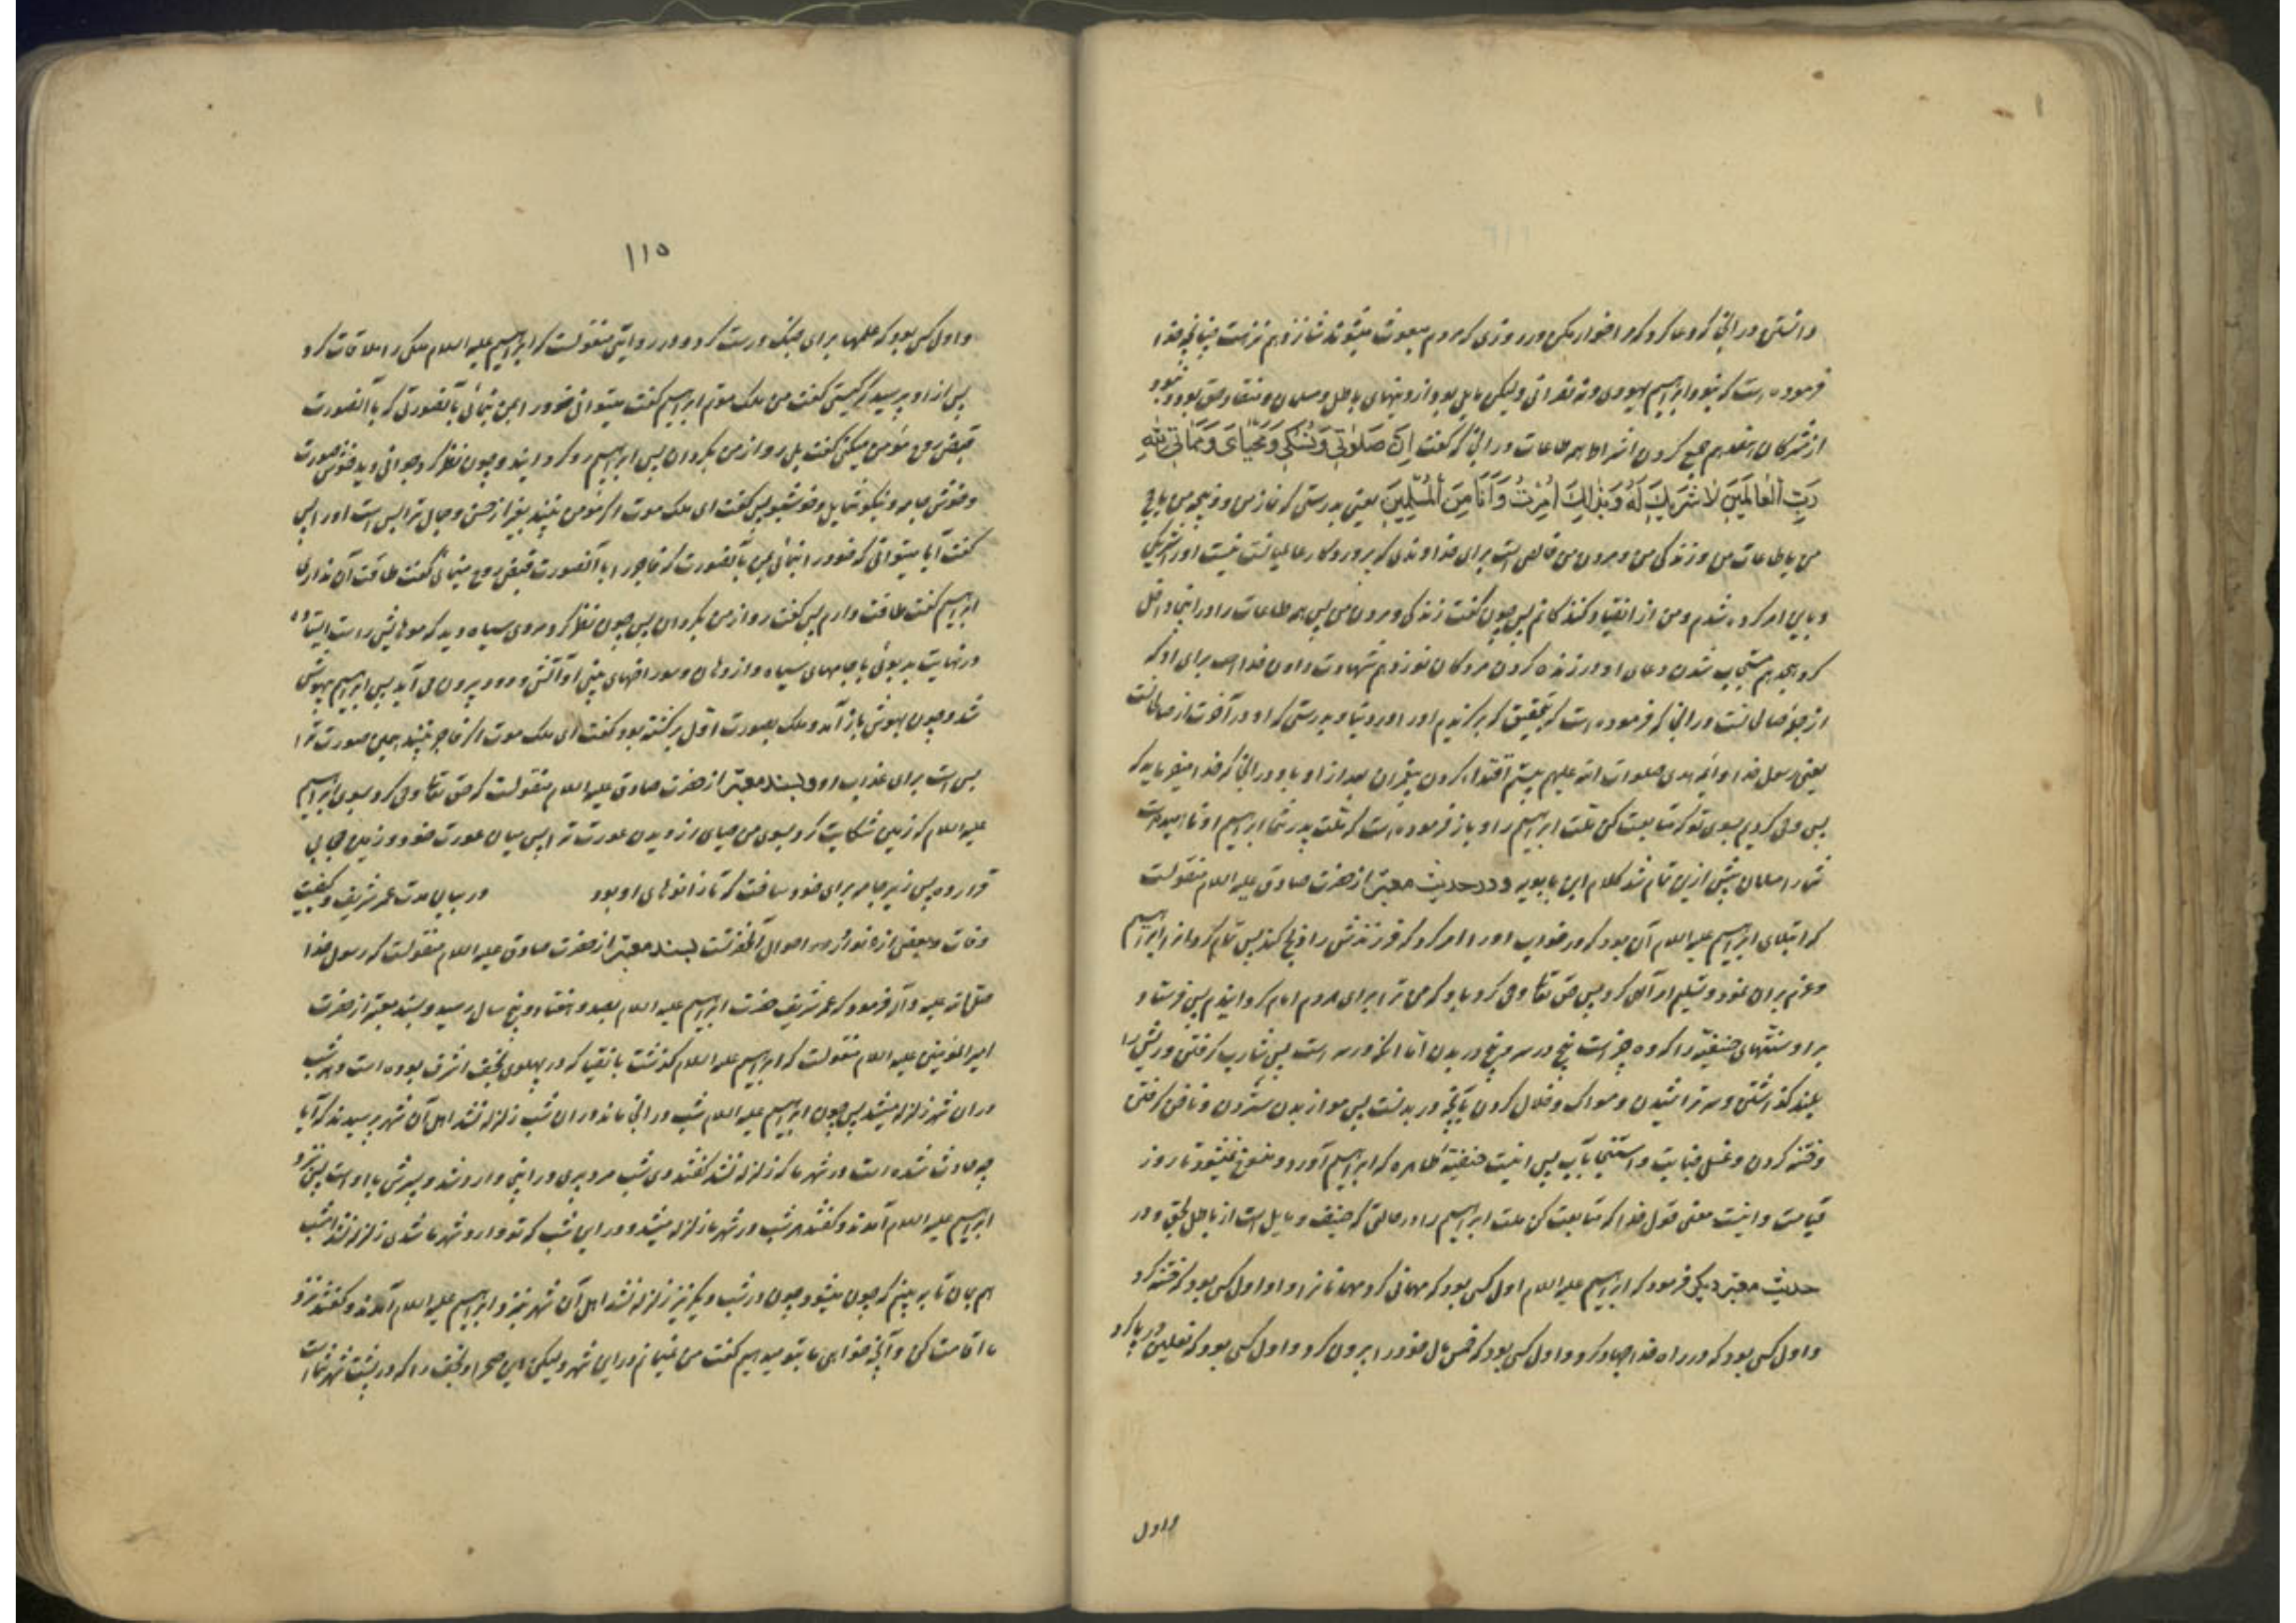 دانستن در آنجا که دعا کرد که مرا خوار مکن در روزی که مردم مبعوث میشوند شانزدهم نزهت چنانچه خدا
فرموده است که نبود ابراهیم یهودی و نه نصرانی ولیکن مایل بود از دینهای باطل و مسلمان و منقاد حق بود و نبود
از مشرکان هفدهم جمع کردن اشراط همه طاعات در آنجا که گفت اِنَّ صَلوٰتی وَنُسُکی وَمَحْیایَ وَمَمَاتی لِلّهِ
رَبِّ الْعٰالَمینَ لاٰ شَریکَ لَهُ وَبِذٰلِکَ اُمِرْتُ وَاَنَا مِنَ الْمُسْلِمینَ یعنی بدرستی که نماز من و ذبیحه من یا حج
من یا طاعات من و زندگی من و مردن من خالص است برای خداوندی که پروردگار عالمیانست نیست او را شریکی
و باین امر کرده شدم و من از انقیاد کنندگانم پس چون گفت زندگی و مردن من پس همه طاعات را در اینجا داخل
کرد هجدهم مستجاب شدن دعای او در زنده کردن مردگان نوزدهم شهادت دادن خداست برای او که
از جمله صالحانست در آنجا که فرموده است که بتحقیق که برگزیدیم او را در دنیا و بدرستی که او در آخرت از صالحانست
یعنی رسول خدا و ائمه هدی صلوات الله علیهم بیستم اقتداء کردن پیغمبران بعد از او باو در آنجا که خدا میفرماید که
پس وحی کردیم بسوی تو که متابعت کن ملت ابراهیم را و باز فرموده است که ملت پدر شما ابراهیم او نامیده است
شما را مسلمان پیش ازین تمام شد کلام ابن بابویه و در حدیث معتبر از حضرت صادق علیه السلام منقولست
که ابتلای ابراهیم علیه السلام آن بود که در خواب او را امر کرد که فرزندش را ذبح کند پس تمام کرد آنرا ابراهیم
و عزم بر آن نمود و تسلیم امر الهی کرد پس حق تعالی وحی کرد باو که من ترا برای مردم امام گردانیدم پس فرستاد
بر او سنتهای حنیفیّه را که ده چیز است پنج در سر و پنج در بدن اما آنکه در سر است پس شارب گرفتن و ریش را
بلند گذاشتن و سر تراشیدن و مسواک و خلال کردن و آنچه در بدنست پس مو از بدن ستردن و ناخن گرفتن
و ختنه کردن و غسل جنابت و استنجا بآب پس اینست حنیفیّه طاهره که ابراهیم آورد و منسوخ نمیشود تا روز
قیامت و اینست معنی قول خدا که متابعت کن ملت ابراهیم را در حالتی که حنیف و مایل است از باطل بحق و در
حدیث معتبر دیگر فرمود که ابراهیم علیه السلام اول کسی بود که مهمانی کرد مهمانانرا و او اول کسی بود که ختنه کرد
و اول کسی بود که در راه خدا جهاد کرد و اول کسی بود که خمس مال خود را بیرون کرد و اول کسی بود که نعلین در پا کرد
و اول
۱۱۵
و اول کسی بود که علمها برای جنگ درست کرد و در روایتی منقولست که ابراهیم علیه السلام ملکی را ملاقات کرد
پس از او پرسید که کیستی گفت من ملک موتم ابراهیم گفت میتوانی خود را بمن بنمائی بآنصورتی که با آنصورت
قبض روح مؤمن میکنی گفت بلی رو از من بگردان پس ابراهیم رو گردانید و چون نظر کرد جوانی دید خوش صورت
و خوش جامه و نیکو شمایل و خوشبو پس گفت ای ملک موت اگر مؤمن نبیند بغیر از حسن و جمال ترا بس است او را پس
گفت آیا میتوانی که خود را بنمائی بمن بآنصورت که فاجر را با آنصورت قبض روح مینمائی گفت طاقت آن نداری
ابراهیم گفت طاقت دارم پس گفت رو از من بگردان پس چون نظر کرد مردی سیاه دید که موهایش راست ایستاده
در نهایت بدبوئی با جامهای سیاه و از دهان و سوراخهای بینی او آتش و دود بیرون می آید پس ابراهیم بیهوش
شد و چون بهوش باز آمد و ملک بصورت اول برگشته بود گفت ای ملک موت اگر فاجر نبیند همین صورت ترا
بس است برای عذاب او و بسند معتبر از حضرت صادق علیه السلام منقولست که حق تعالی وحی کرد بسوی ابراهیم
علیه السلام که زمین شکایت کرد بسوی من حیای از دیدن عورت ترا پس میان عورت خود و زمین حجابی
قرار ده پس زیر جامه برای خود ساخت که تا زانوهای او بود در بیان مدت عمر شریف و کیفیت
وفات و بعضی از نوادر احوال آنحضرتست بسند معتبر از حضرت صادق علیه السلام منقولست که رسول خدا
صلی الله علیه و آله فرمود که عمر شریف حضرت ابراهیم علیه السلام بصد و هفتاد و پنج سال رسید و بسند معتبر از حضرت
امیرالمؤمنین علیه السلام منقولست که ابراهیم علیه السلام گذشت بانقیا که در پهلوی نجف اشرف بوده است و هر شب
در آن شهر زلزله میشد پس چون ابراهیم علیه السلام شب در آنجا ماند در آن شب زلزله نشد اهل آن شهر پرسیدند که آیا
چه حادث شده است در شهر ما که زلزله نشد گفتند دی شب مرد پیری در اینجا وارد شد و پسرش با او است پس نزد
ابراهیم علیه السلام آمدند و گفتند هر شب در شهر ما زلزله میشد و در این شب که تو وارد شهر ما شدی زلزله نشد امشب
هم بمان تا به بینیم که چون میشود چون در شب دیگر نیز زلزله نشد اهل آن شهر بنزد ابراهیم علیه السلام آمدند و گفتند نزد
ما اقامت کن و آنچه خواهی ما بتو میدهیم گفت من نمیمانم در این شهر ولیکن این صحرا و نجف را که در پشت شهر شما است